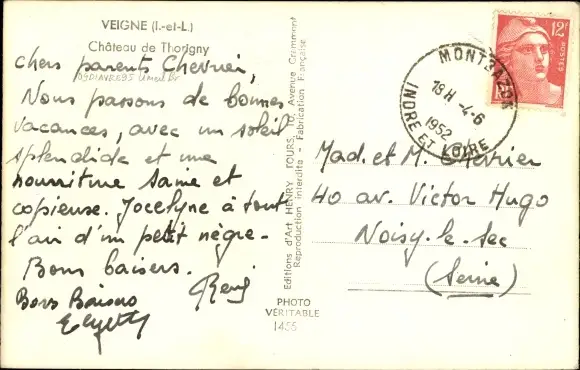 VEIGNE (I.-et-L.)
Château de Thorigny
chers parents Chevrier,
Nous passons de bonnes
vacances, avec un soleil
splendide et une
nourriture saine et
copieuse. Jocelyne a tout
l'air d'un petit nègre.
Bons baisers.
René
Bons Baisers
Editions d'Art HENRY TOURS, 10, Avenue Grammont
Reproduction interdite - Fabrication Française
PHOTO
VÉRITABLE
1455
12F
POSTES
MONTBAZON
18H -4-6
1952
INDRE ET LOIRE
Mad. et M. Chevrier
40 av. Victor Hugo
Noisy-le-Sec
(Seine)